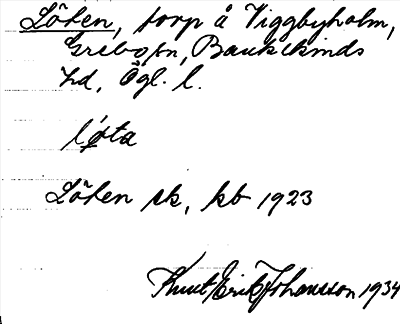 Löten, torp å Viggbyholm,
Grebo sn, Bankekinds
hd, Ögl. l.
løta
Löten sk, kb 1923
Knut Erik Johansson 1934